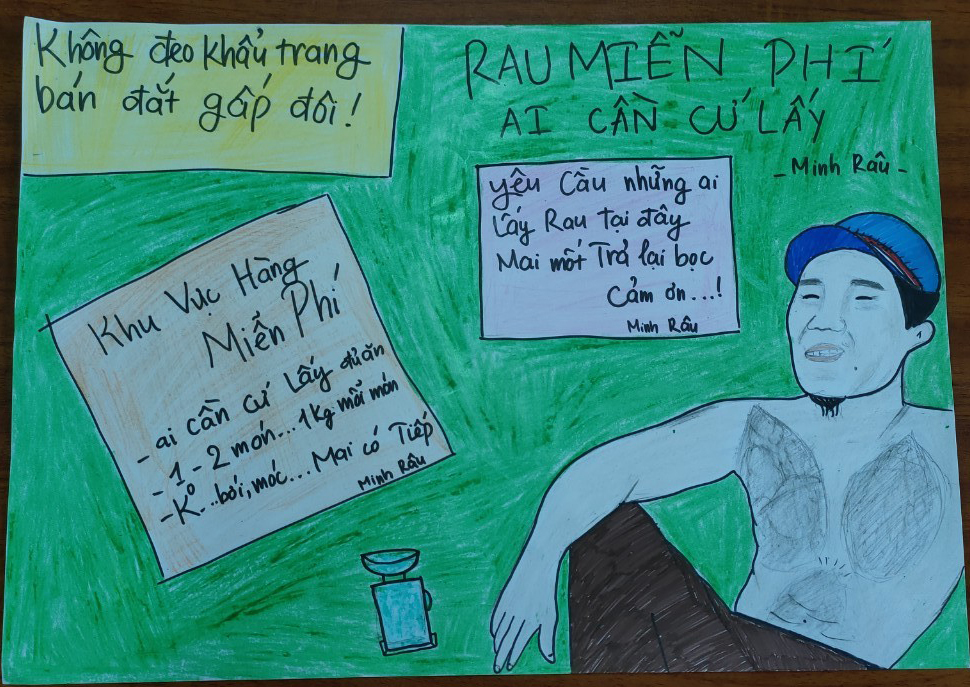 Không đeo khẩu trang
bán đắt gấp đôi!
RAU MIỄN PHÍ
AI CẦN CỨ LẤY
- Minh Râu -
yêu Cầu những ai
Lấy Rau tại đây
Mai mốt Trả lại bọc
Cảm ơn...!
Minh Râu
Khu Vực Hàng
Miễn Phí
- ai cần cứ Lấy đủ ăn
- 1 - 2 món... 1kg mỗi món
- K°... bới, móc... Mai có Tiếp
Minh Râu